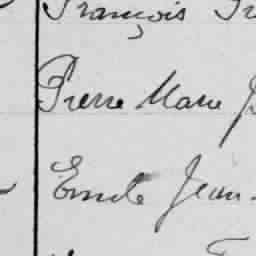 François
Pierre Marie J
Emile Jean-